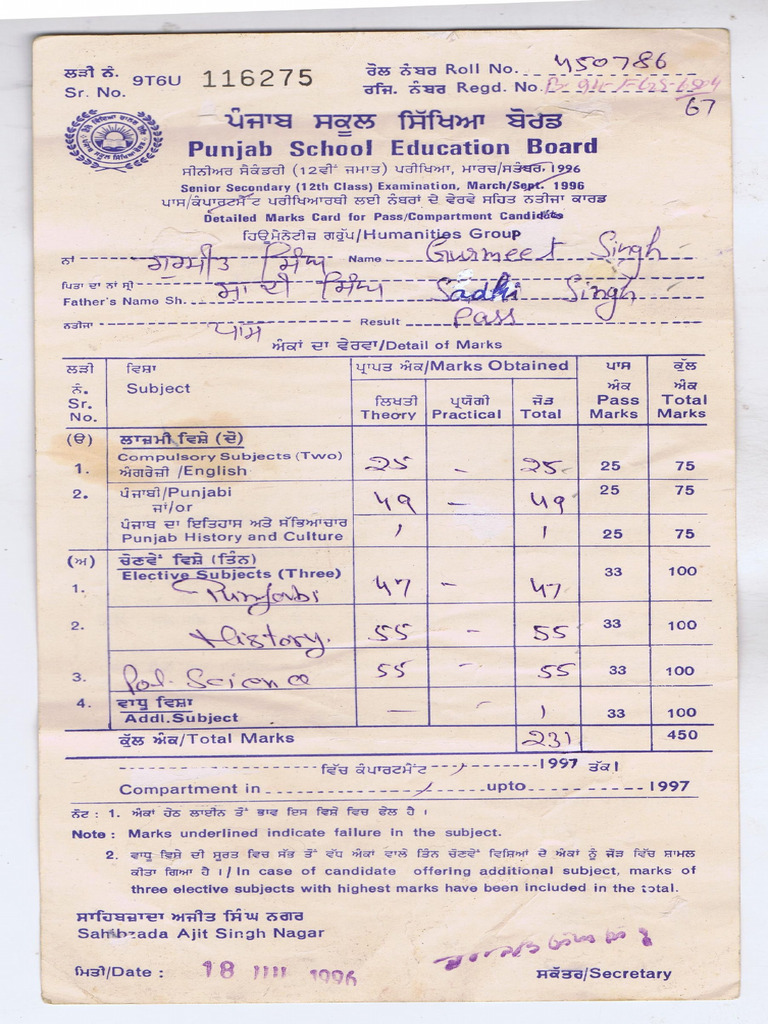 ਲੜੀ ਨੰ. ਰੋਲ ਨੰਬਰ Roll No. 450786
Sr. No. 9T6U 116275 ਰਜਿ. ਨੰਬਰ Regd. No.
67
ਪੰਜਾਬ ਸਕੂਲ ਸਿੱਖਿਆ ਬੋਰਡ
Punjab School Education Board
ਸੀਨੀਅਰ ਸੈਕੰਡਰੀ (12ਵੀਂ ਜਮਾਤ) ਪਰੀਖਿਆ, ਮਾਰਚ/ਸਤੰਬਰ, 1996
Senior Secondary (12th Class) Examination, March/Sept. 1996
ਪਾਸ/ਕੰਪਾਰਟਮੈਂਟ ਪਰੀਖਿਆਰਥੀ ਲਈ ਨੰਬਰਾਂ ਦੇ ਵੇਰਵੇ ਸਹਿਤ ਨਤੀਜਾ ਕਾਰਡ
Detailed Marks Card for Pass/Compartment Candidate
ਹਿਊਮੈਨੇਟੀਜ਼ ਗਰੁੱਪ/Humanities Group
ਨਾਂ ਗੁਰਮੀਤ ਸਿੰਘ Name Gurmeet Singh
ਪਿਤਾ ਦਾ ਨਾਂ ਸ਼੍ਰੀ ਸਾਧੀ ਸਿੰਘ Sadhi Singh
Father's Name Sh.
ਨਤੀਜਾ ਪਾਸ Result Pass
ਅੰਕਾਂ ਦਾ ਵੇਰਵਾ/Detail of Marks
ਲੜੀ ਨੰ. Sr. No. ਵਿਸ਼ਾ Subject ਪ੍ਰਾਪਤ ਅੰਕ/Marks Obtained ਪਾਸ ਅੰਕ Pass Marks ਕੁੱਲ ਅੰਕ Total Marks
ਲਿਖਤੀ Theory ਪ੍ਰਯੋਗੀ Practical ਜੋੜ Total
(ੳ) ਲਾਜ਼ਮੀ ਵਿਸ਼ੇ (ਦੋ)
Compulsory Subjects (Two)
1. ਅੰਗਰੇਜ਼ੀ /English 25 - 25 25 75
2. ਪੰਜਾਬੀ/Punjabi 49 - 49 25 75
ਜਾਂ/or
ਪੰਜਾਬ ਦਾ ਇਤਿਹਾਸ ਅਤੇ ਸੱਭਿਆਚਾਰ
Punjab History and Culture / / 25 75
(ਅ) ਚੋਣਵੇਂ ਵਿਸ਼ੇ (ਤਿੰਨ)
Elective Subjects (Three)
1. Punjabi 47 - 47 33 100
2. History. 55 - 55 33 100
3. Pol. Science 55 - 55 33 100
4. ਵਾਧੂ ਵਿਸ਼ਾ
Addl. Subject - / 33 100
ਕੁੱਲ ਅੰਕ/Total Marks 231 450
ਵਿੱਚ ਕੰਪਾਰਟਮੈਂਟ 1997 ਤੱਕ।
Compartment in upto 1997
ਨੋਟ : 1. ਅੰਕਾਂ ਹੇਠ ਲਾਈਨ ਤੋਂ ਭਾਵ ਇਸ ਵਿਸ਼ੇ ਵਿਚ ਫੇਲ ਹੈ ।
Note : Marks underlined indicate failure in the subject.
2. ਵਾਧੂ ਵਿਸ਼ੇ ਦੀ ਸੂਰਤ ਵਿਚ ਸੱਭ ਤੋਂ ਵੱਧ ਅੰਕਾਂ ਵਾਲੇ ਤਿੰਨ ਚੋਣਵੇਂ ਵਿਸ਼ਿਆਂ ਦੇ ਅੰਕਾਂ ਨੂੰ ਜੋੜ ਵਿੱਚ ਸ਼ਾਮਲ
ਕੀਤਾ ਗਿਆ ਹੈ ।/In case of candidate offering additional subject, marks
of three elective subjects with highest marks have been included in the total.
ਸਾਹਿਬਜ਼ਾਦਾ ਅਜੀਤ ਸਿੰਘ ਨਗਰ
Sahibzada Ajit Singh Nagar
ਮਿਤੀ/Date : 18 JUL 1996 ਸਕੱਤਰ/Secretary